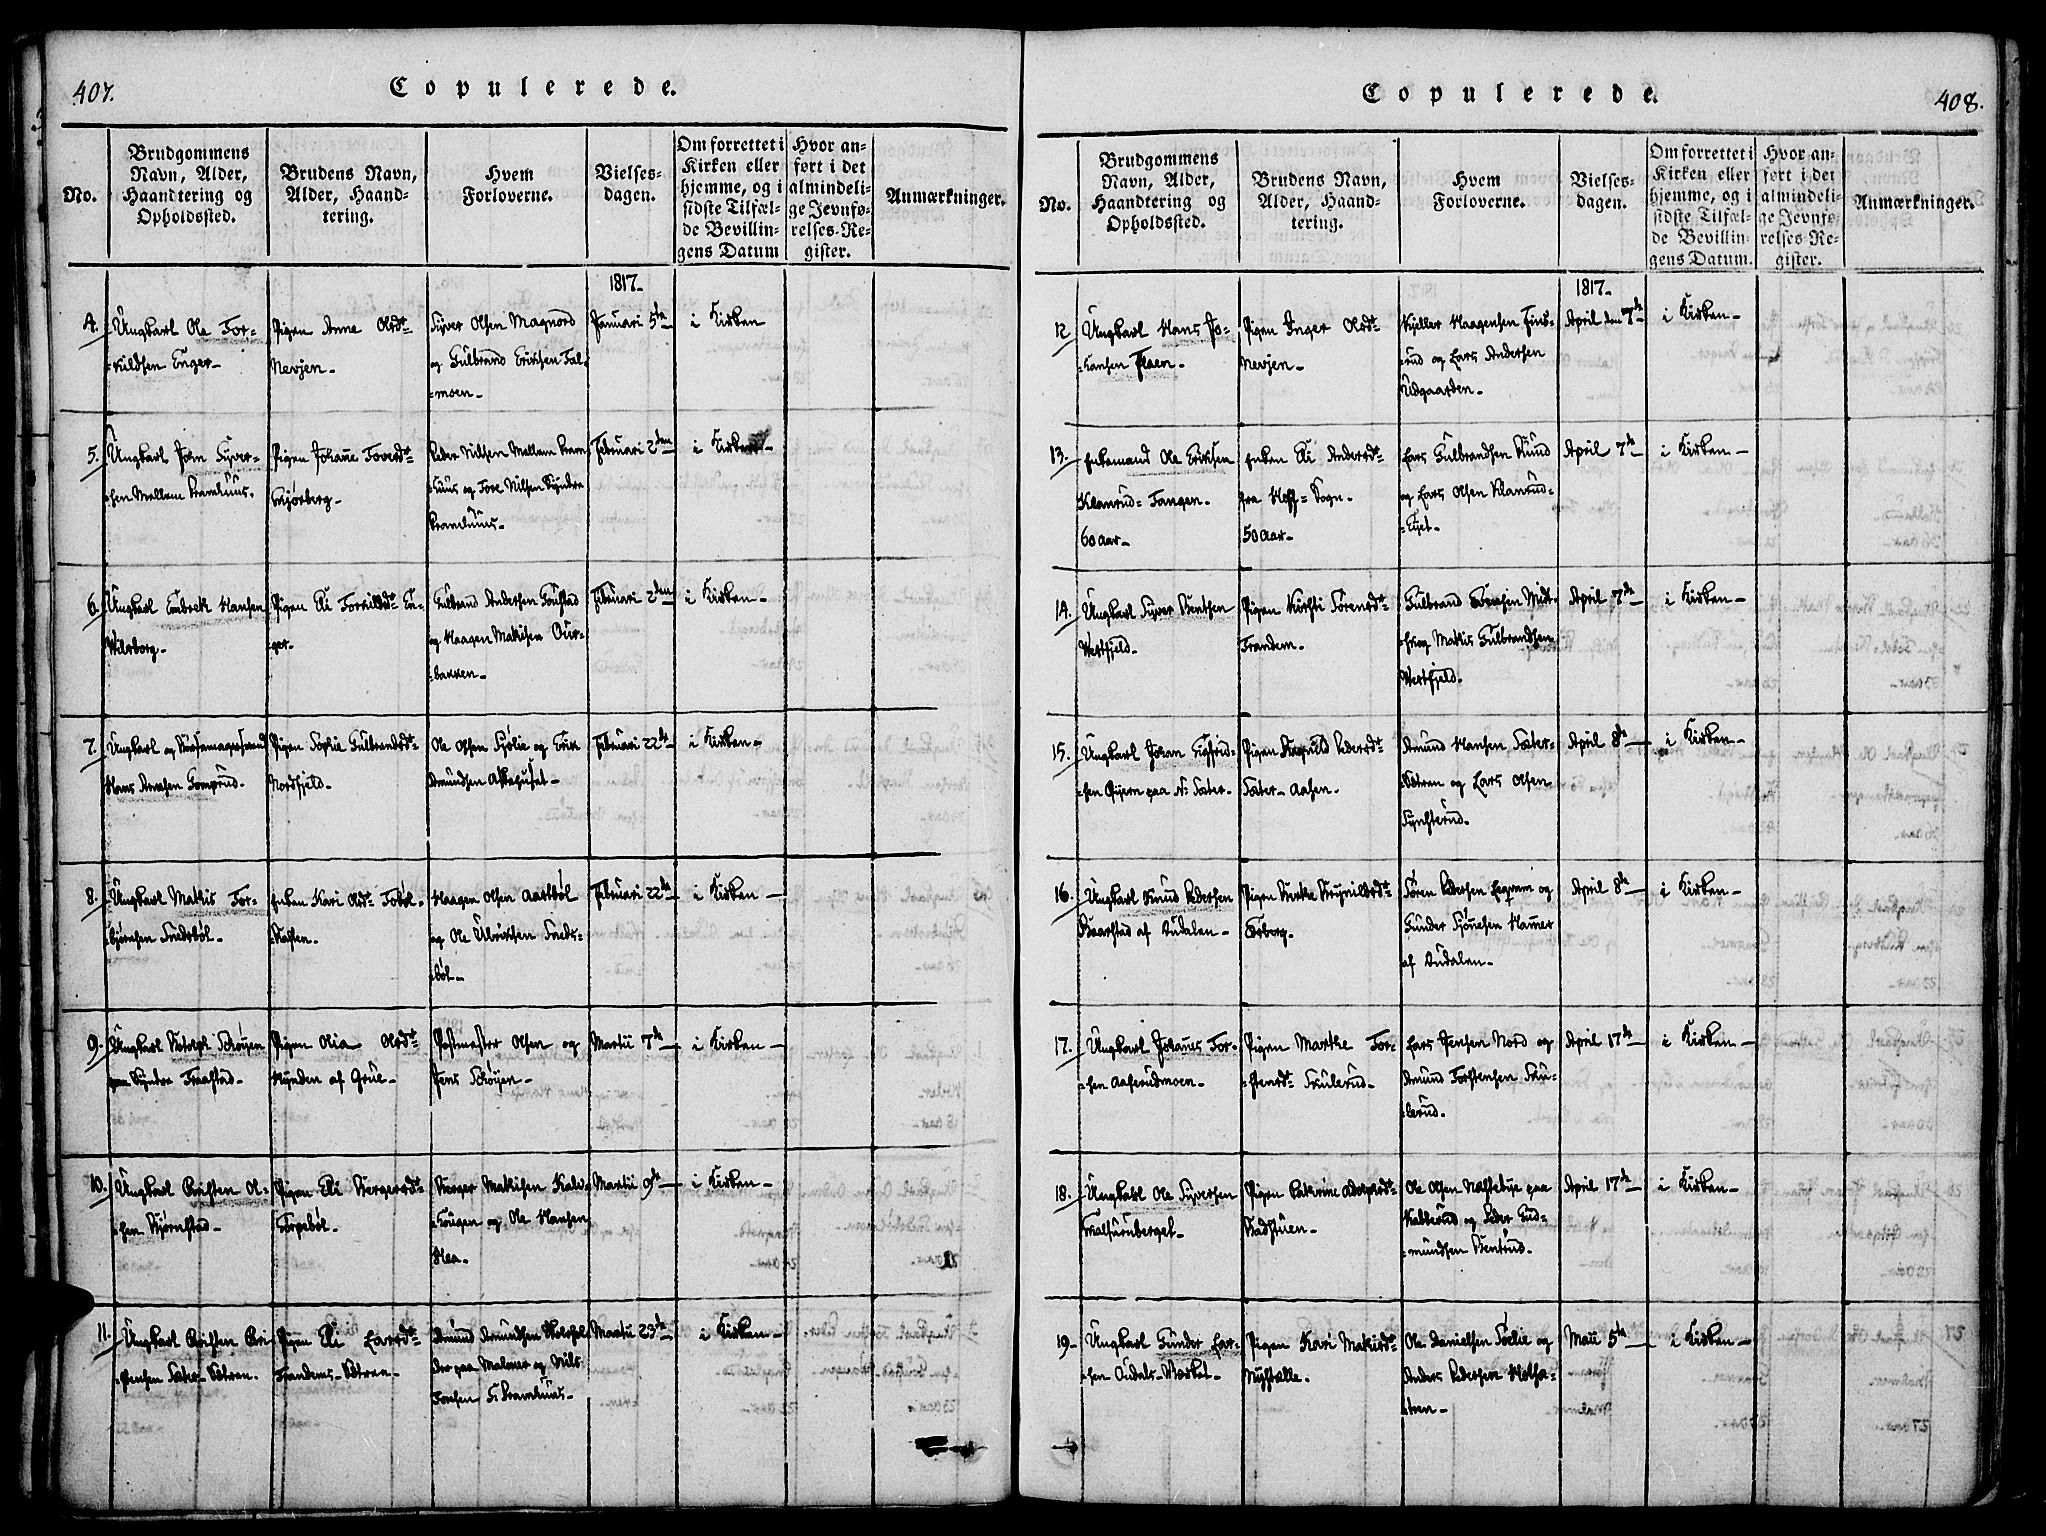 407.
Copulerede.
No.
Brudgommens
Navn, Alder,
Haandtering og
Opholdssted.
Brudens Navn,
Alder, Haand-
tering.
Hvem
Forloverne.
Vielses-
dagen.
Om forrettet i
Kirken eller
hjemme, og i
sidste Tilfæl-
de Bevillin-
gens Datum
Hvor an-
ført i det
almindeli-
ge Jevnfø-
relses-Re-
gister.
Anmærkninger.
1817.
4.
Ungkarl Ole Tor-
-kildsen Enger-
Pigen Anne Olsdt-
Nevjen-
Syver Olsen Magnord
og Gulbrand Eriksen Tal-
-moen-
Januari 5te
i Kirken
5.
Ungkarl John Syver-
-sen Mellem
Pigen Johane Toversdt-
Skjørberg-
Peder Nilsen Mellem
og Tove Nilsen Syndre
Februari 2den
i Kirken
6.
Ungkarl Embrek Hansen
Wilsborg-
Pigen Eli Torkildsdt En-
-ger-
Gulbrand Andersen
og Haagen Matisen Our-
-bakken-
Februari 2den
i Kirken-
7.
Ungkarl og
Hans Arnesen Gomsrud-
Pigen Sophie Gulbrandsdt-
Nordfjeld-
Ole Olsen Sjølie og Erik
Amundsen Akkehuset-
Februari 22de
i Kirken-
8.
Ungkarl Mathis Tor-
-bjørnsen Snedsbøl-
Enken Kari Olsdt Tobøl-
-Kasten-
Haagen Olsen Aastbøl
og Ole Ulriksen Sneds-
-bøl-
Februari 22de
i Kirken-
9.
Ungkarl Schøyen
paa Syndre Fraastad-
Pigen Olia Olsdt-
Kynden af Grue-
Postmester Olsen og
Jens Schøyen-
Martii 7de
i Kirken-
10.
Ungkarl Cristen Ol-
-sen Bjørnstad-
Pigen Eli Bergersdt-
Torpebøl-
Berger Matisen Kalv-
-hougen og Ole Hansen
Hea-
Martii 9de
i Kirken-
11.
Ungkarl Cristen Cri-
-stensen Sæter-Østren.
Pigen Eli Larsdt-
Trandems-Østren-
Amund Amundsen
paa Malmer og Nils
Martii 23de
i Kirken-
Copulerede.
408.
No.
Brudgommens
Navn, Alder,
Haandtering og
Opholdssted.
Brudens Navn,
Alder, Haand-
tering.
Hvem
Forloverne.
Vielses-
dagen.
Om forrettet i
Kirken eller
hjemme, og i
sidste Tilfæl-
de Bevillin-
gens Datum.
Hvor an-
ført i det
almindeli-
ge Jevnfø-
relses-Re-
gister.
Anmærkninger.
1817.
12
Ungkarl Hans Jo-
-hansen Flaen-
Pigen Inger Olsdt-
Nevjen-
Kjeller Haagensen Finds-
-rud og Lars Andersen
Udgaarden-
April den 7de
i Kirken-
13.
Enkemand Ole Eriksen
Klanrud-Tangen-
60 aar-
Enken Eli Andersdt-
fra Hoff-Sogn-
50 aar-
Lars Gulbrandsen Knud
og Lars Olsen Klanrud-
-Eyet-
April 7de
i Kirken-
14.
Ungkarl Syver Bentsen
Westfjeld-
Pigen Kirsti Sørensdt-
Trandem-
Gulbrand Sørensen Midt-
-skog Matis Gulbrandsen
Westfjeld-
April 7de
i Kirken-
15.
Ungkarl Johan Sigfrid-
-sen Øyern paa N: Sæter-
Pigen Ragnild Pedersdt-
Sæter-Aasen.
Amund Hansen Sæter-
-Østren og Lars Olsen
Synsterud-
April 8de
i Kirken-
16.
Ungkarl Knud Pedersen
Baarstad af Oudalen-
Pigen Berte Brynildsdt-
Torberg-
Søren Pedersen og
Gunder Sjønesen Hammer
af Oudalen-
April 8de
i Kirken-
17.
Ungkarl Johannes Tor-
-sen Aaserudmoen-
Pigen Marthe Tor-
-stensdt- Skulerud-
Lars Jensen Nord og
Amund Torstensen Sku-
-lerud.
April 17de
i Kirken-
18.
Ungkarl Ole Syversen
Skalfuruberget-
Pigen Catrine Adolphsdt-
Badstuen-
Ole Olsen Næstebye paa
Kabberud og Peder Gud-
-mundsen Bentrud-
April 17de
i Kirken-
19-
Ungkarl Gunder Lar-
-sen Oudals-Værket-
Pigen Kari Matisdt-
Nystalle.
Ole Danielsen Sæelie og
Anders Pedersen Holsæ-
-teren-
Maii 5te
i Kirken-